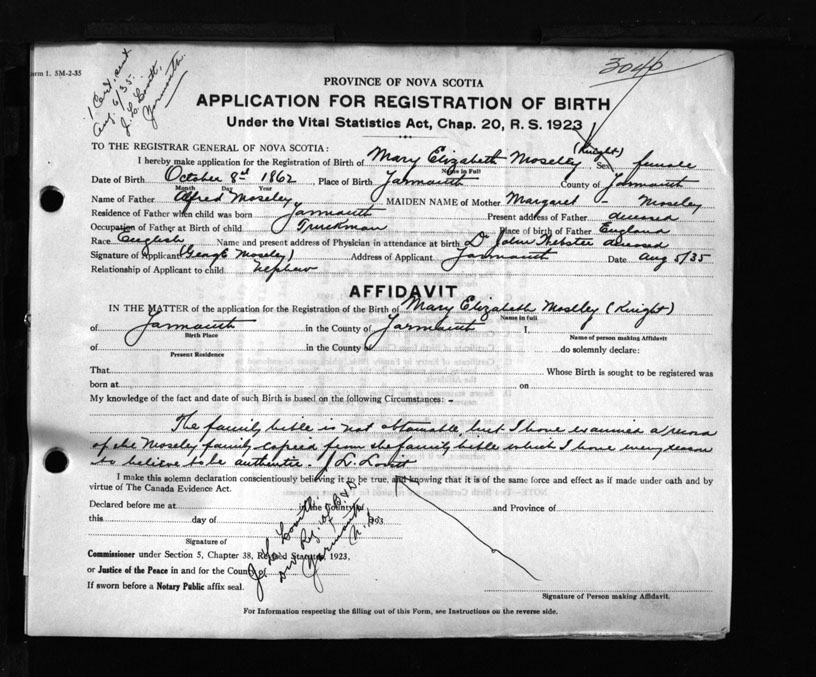 Form 1. 5M-2-35
1 Cert. sent
Aug 6/35.
J. L. Lovitt,
Yarmouth.
3040
PROVINCE OF NOVA SCOTIA
APPLICATION FOR REGISTRATION OF BIRTH
Under the Vital Statistics Act, Chap. 20, R. S. 1923
TO THE REGISTRAR GENERAL OF NOVA SCOTIA:
I hereby make application for the Registration of Birth of Mary Elizabeth Moseley (Knight) Sex female
Name in Full
Date of Birth October 8th 1862, Place of Birth Yarmouth County of Yarmouth
Month Day Year
Name of Father Alfred Moseley MAIDEN NAME of Mother Margaret - Moseley
Residence of Father when child was born Yarmouth Present address of Father deceased
Occupation of Father at Birth of child Truckman Place of birth of Father England
Race English Name and present address of Physician in attendance at birth Dr John Webster deceased
Signature of Applicant (George Moseley) Address of Applicant Yarmouth Date Aug 5/35
Relationship of Applicant to child nephew
AFFIDAVIT
IN THE MATTER of the application for the Registration of the Birth of Mary Elizabeth Moseley (Knight)
Name in full
of Yarmouth in the County of Yarmouth I,
Birth Place Name of person making Affidavit
of in the County of do solemnly declare:
Present Residence
That Whose Birth is sought to be registered was
born at on
My knowledge of the fact and date of such Birth is based on the following Circumstances: -
The family bible is not obtainable, but I have examined a record
of the Moseley family copied from the family bible which I have every reason
to believe to be authentic. J. L. Lovitt
I make this solemn declaration conscientiously believing it to be true, and knowing that it is of the same force and effect as if made under oath and by
virtue of The Canada Evidence Act.
Declared before me at in the County of and Province of
this day of 193
Signature of
Commissioner under Section 5, Chapter 38, Revised Statutes, 1923,
or Justice of the Peace in and for the County
If sworn before a Notary Public affix seal.
J. L. Lovitt.
Div. Reg. of B. & D.
Yarmouth
N. S.
Signature of Person making Affidavit.
For Information respecting the filling out of this Form, see Instructions on the reverse side.